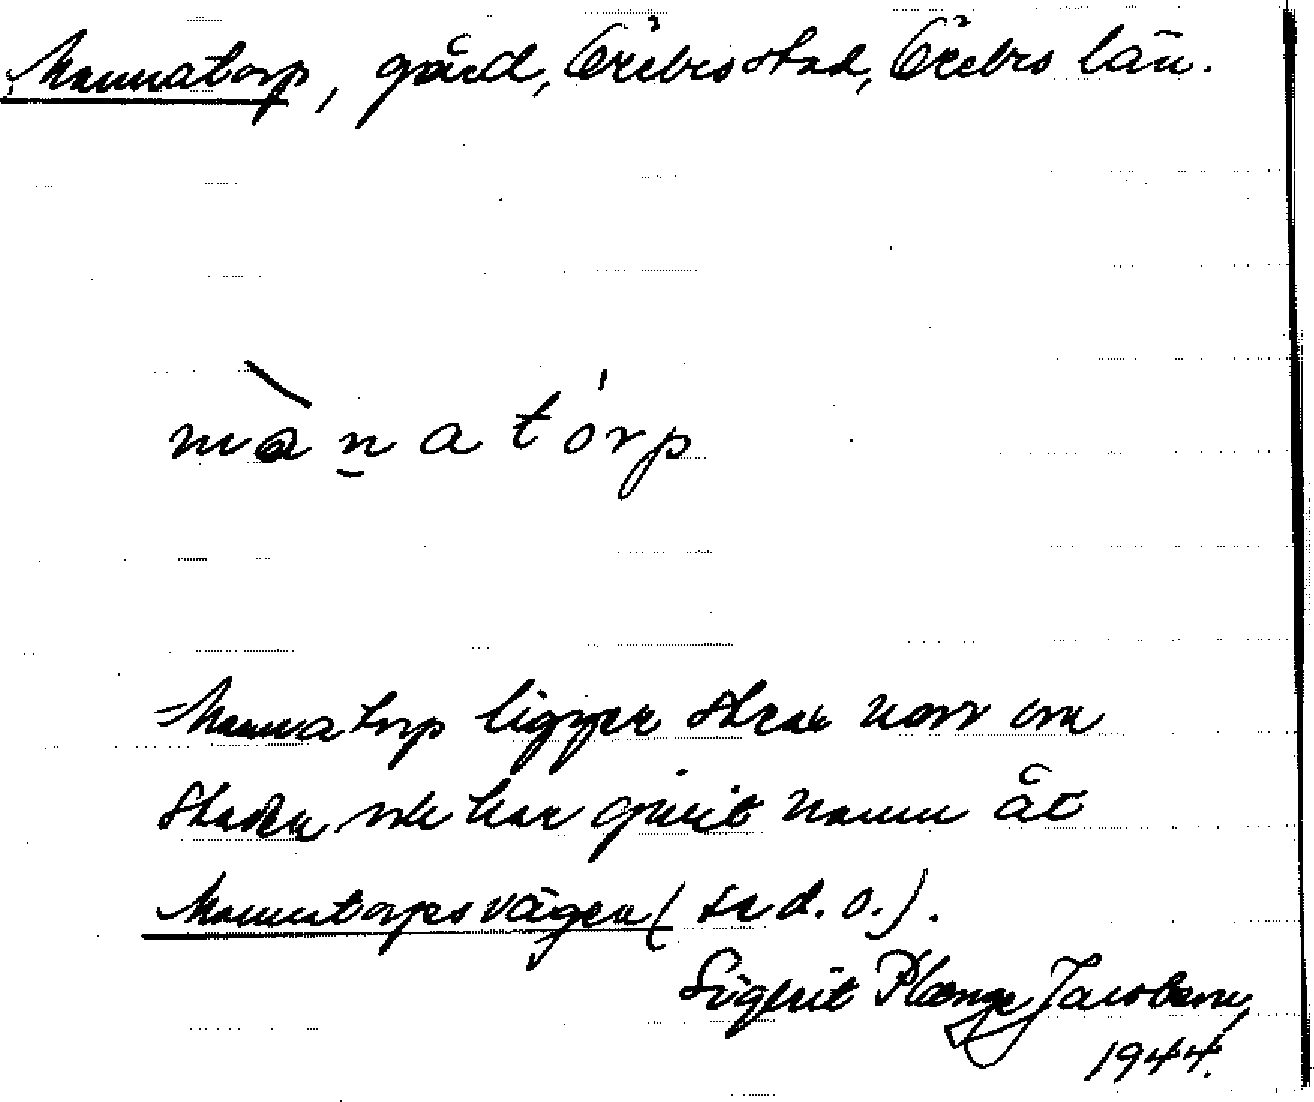 Mannatorp, gård, Örebro stad, Örebro län.
mànatórp
Mannatorp ligger strax norr om
staden och har givit namn åt
Mannatorpsvägen (se d. o.).
Sigurit Plænge Jacobson,
1944.